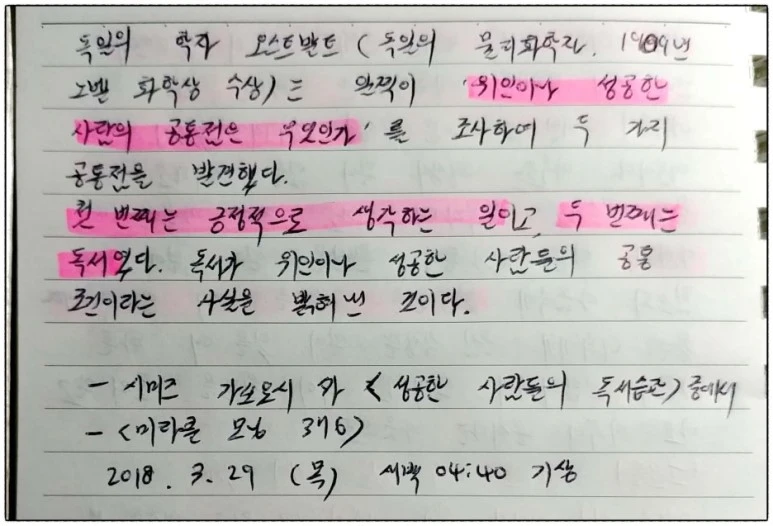 독일의 학자 오스트발트 (독일의 물리화학자. 1909년
노벨 화학상 수상)는 일찍이 '위인이나 성공한
사람의 공통점은 무엇인가'를 조사하여 두 가지
공통점을 발견했다.
첫 번째는 긍정적으로 생각하는 일이고, 두 번째는
독서였다. 독서가 위인이나 성공한 사람들의 공통
조건이라는 사실을 밝혀낸 것이다.
- 시미즈 가쓰요시 와 <성공한 사람들의 독서습관> 중에서
- <미라클 모닝 376>
2018. 3. 29 (목) 새벽 04:40 기상